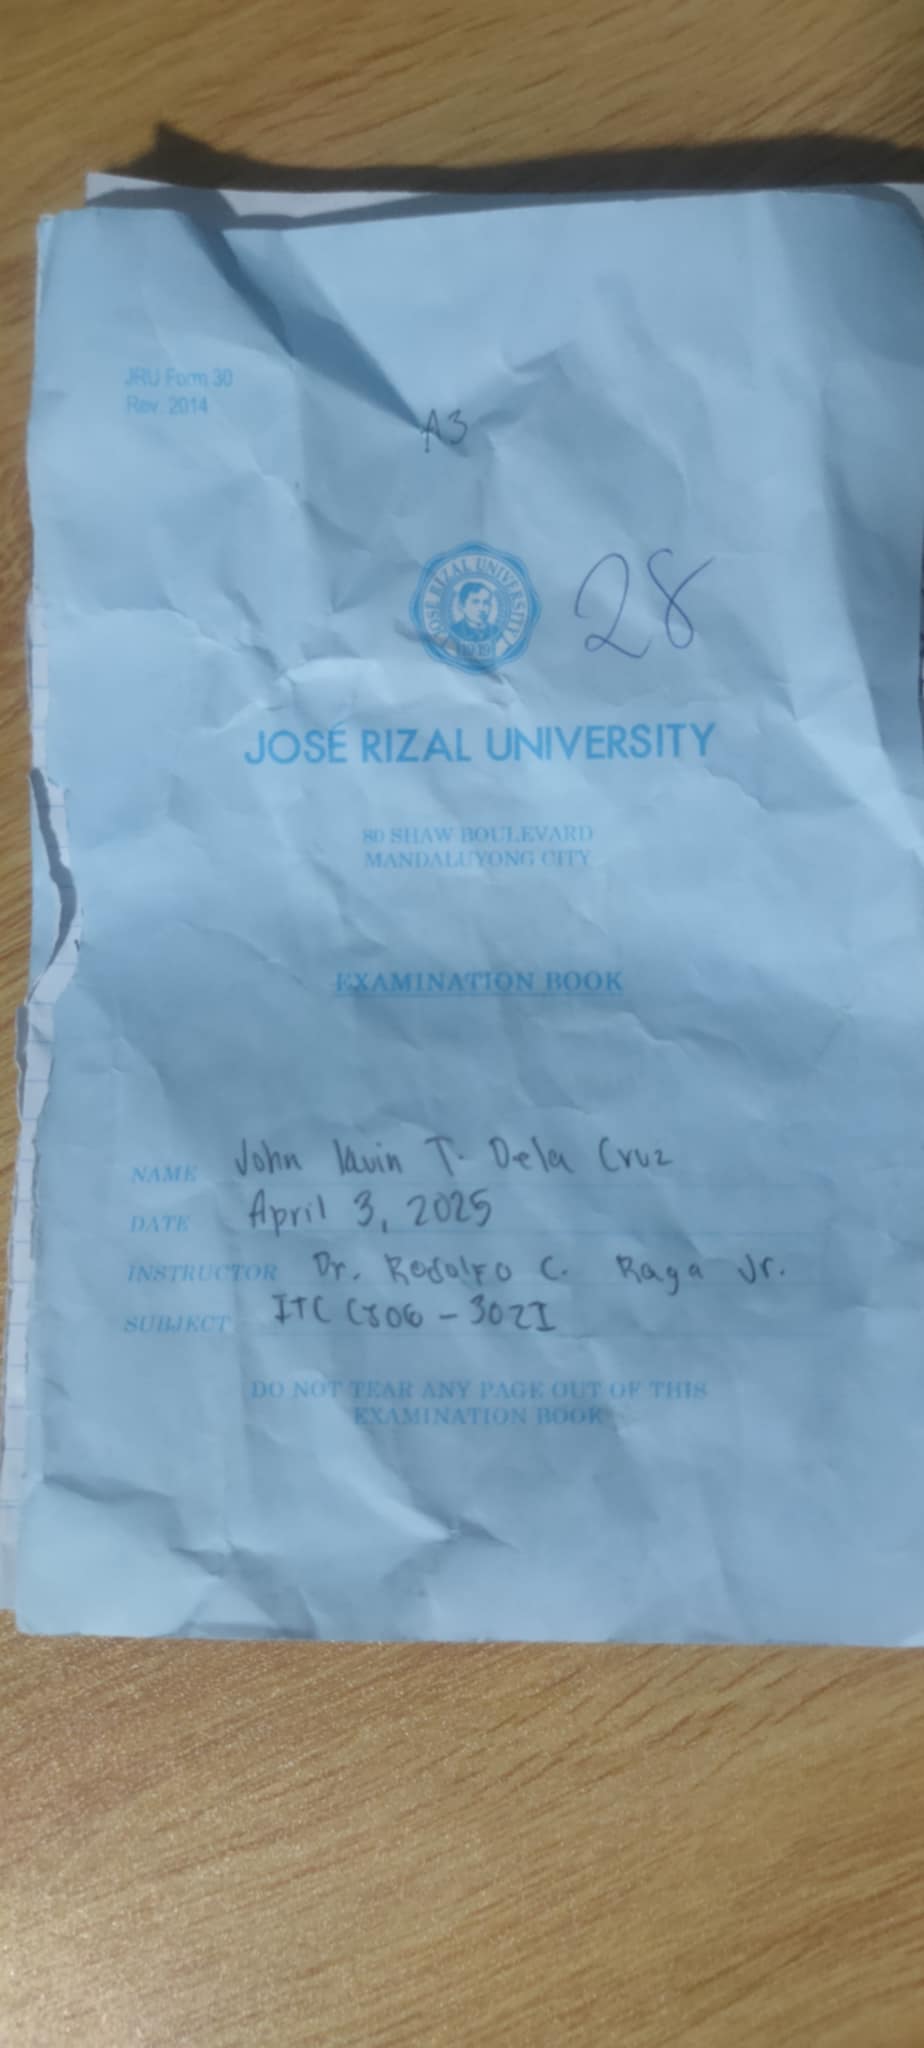 JRU Form 30
Rev. 2014
A3
JOSÉ RIZAL UNIVERSITY
1919
28
JOSÉ RIZAL UNIVERSITY
80 SHAW BOULEVARD
MANDALUYONG CITY
EXAMINATION BOOK
NAME John T. Dela Cruz
DATE April 3, 2025
INSTRUCTOR Dr. Rodolfo C. Raga Jr.
SUBJECT
DO NOT TEAR ANY PAGE OUT OF THIS
EXAMINATION BOOK